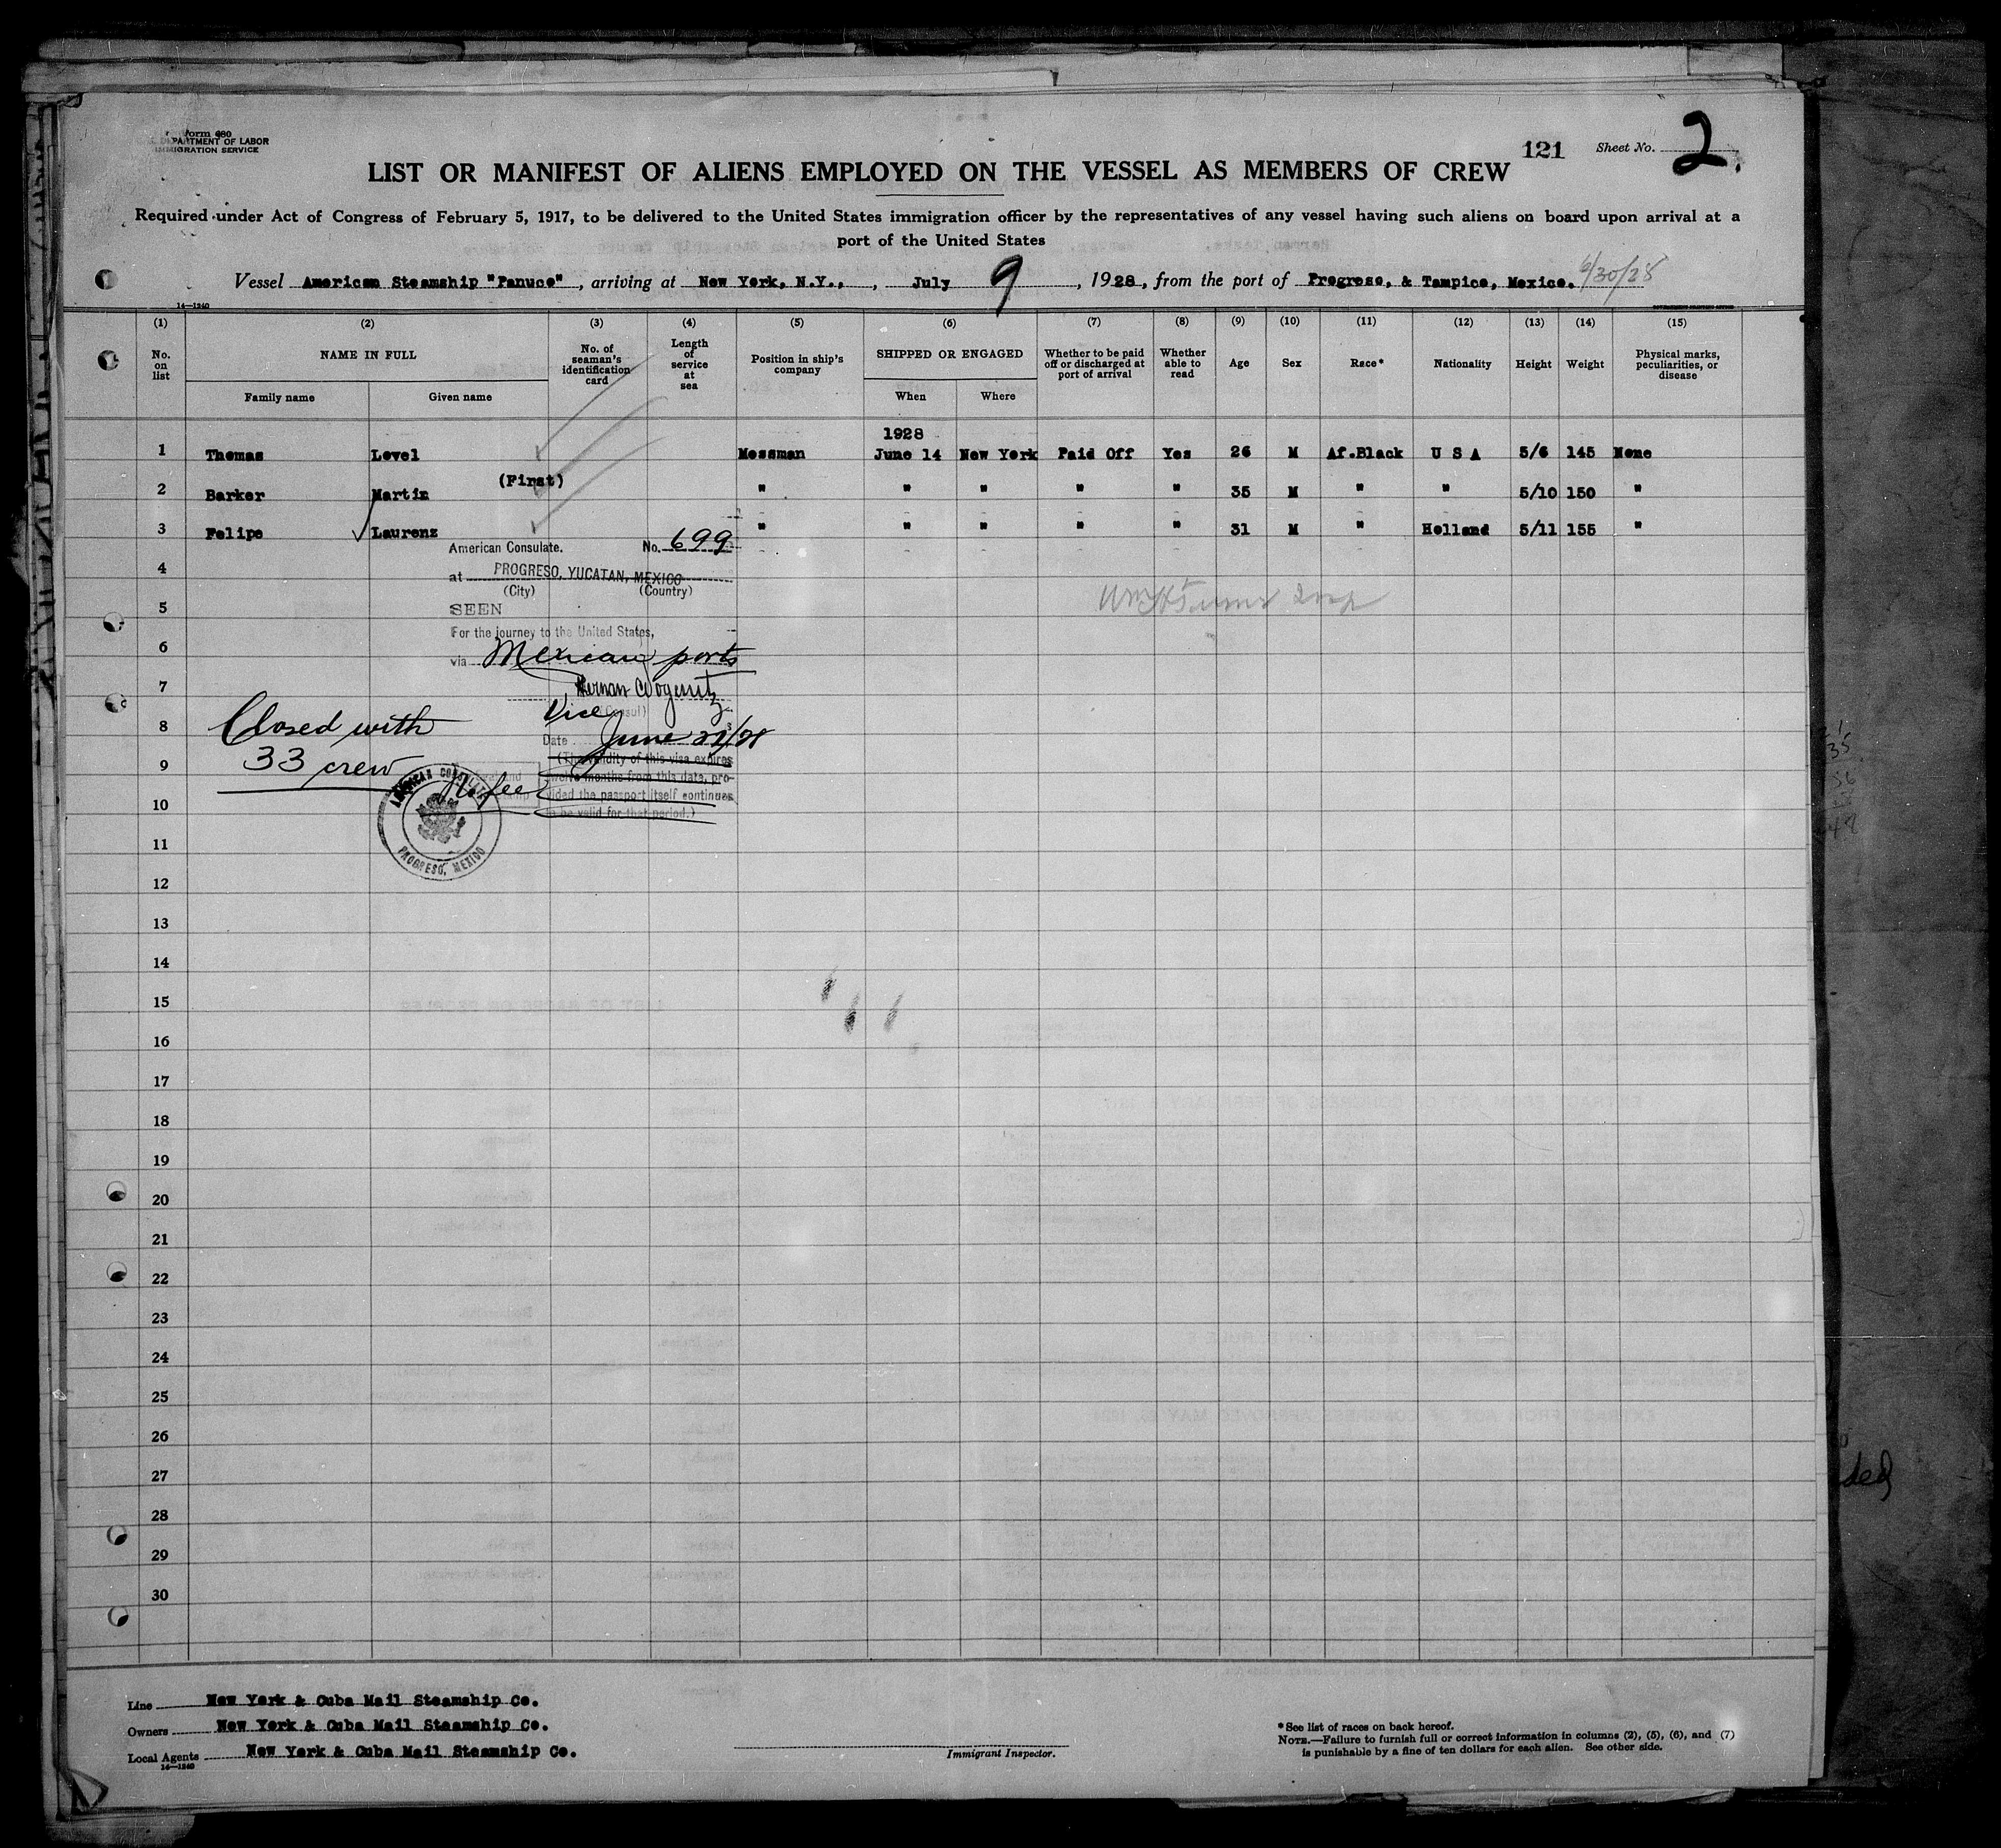 Form 680
DEPARTMENT OF LABOR
IMMIGRATION SERVICE
121 Sheet No. 2.
LIST OR MANIFEST OF ALIENS EMPLOYED ON THE VESSEL AS MEMBERS OF CREW
Required under Act of Congress of February 5, 1917, to be delivered to the United States immigration officer by the representatives of any vessel having such aliens on board upon arrival at a
port of the United States
Vessel American Steamship "Panuco", arriving at New York, N.Y., , July 9, 1928, from the port of Progreso, & Tampico, Mexico. 6/30/28
14—1240
(1) (2) (3) (4) (5) (6) (7) (8) (9) (10) (11) (12) (13) (14) (15)
No. on list NAME IN FULL No. of seaman's identification card Length of service at sea Position in ship's company SHIPPED OR ENGAGED Whether to be paid off or discharged at port of arrival Whether able to read Age Sex Race* Nationality Height Weight Physical marks, peculiarities, or disease
Family name Given name When Where
1928
1 Thomas Lovel Messman June 14 New York Paid Off Yes 26 M Af.Black U S A 5/6 145 None
(First)
2 Barker Martin " " " " " 35 M " " 5/10 150 "
3 Felipe Laurenz " " " " " 31 M " Holland 5/11 155 "
American Consulate. No. 699
4
at PROGRESO, YUCATAN, MEXICO
(City) (Country)
5
SEEN
For the journey to the United States,
6
via Mexican ports
7
Vice (Consul)
8 Closed with
Date June 22/28
(The validity of this visa expires
9 33 crew
twelve months from this date, pro-
No fee
vided the passport itself continues
10
to be valid for that period.)
AMERICAN CONSULATE
PROGRESO, MEXICO
11
12
13
14
15
16
17
18
19
20
21
22
23
24
25
26
27
28
29
30
Line New York & Cuba Mail Steamship Co.
Owners New York & Cuba Mail Steamship Co.
Local Agents New York & Cuba Mail Steamship Co.
14—1240
Immigrant Inspector.
*See list of races on back hereof.
NOTE.—Failure to furnish full or correct information in columns (2), (5), (6), and (7)
is punishable by a fine of ten dollars for each alien. See other side.